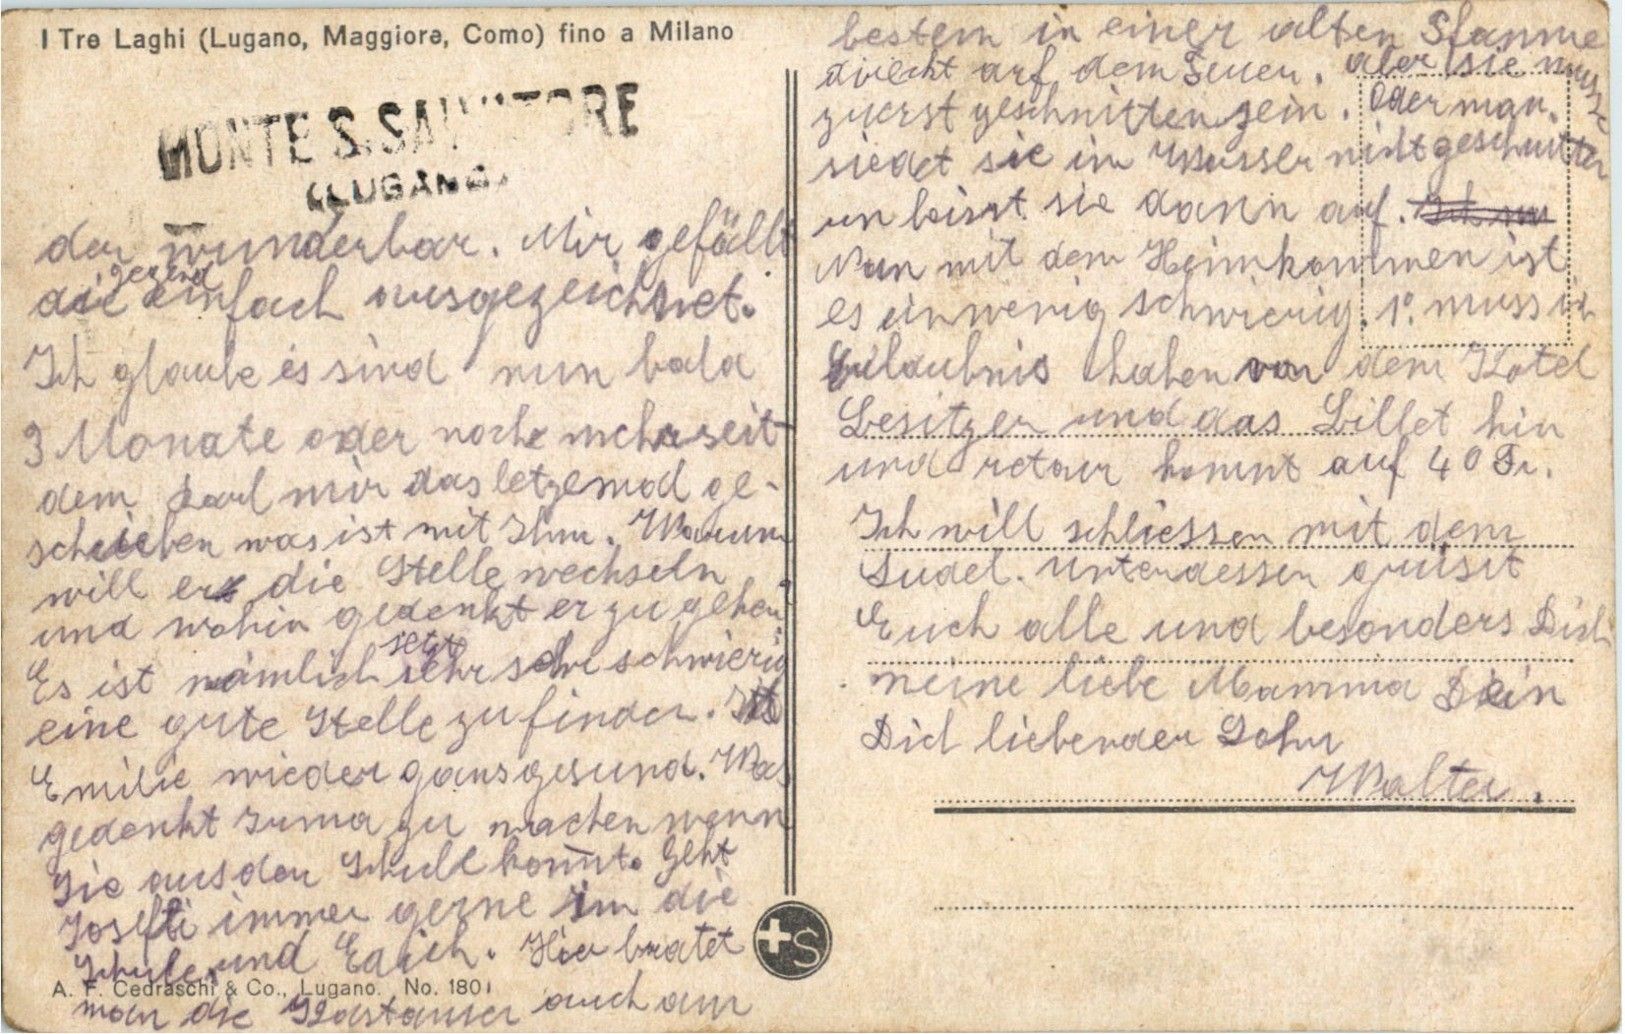 I Tre Laghi (Lugano, Maggiore, Como) fino a Milano
MONTE S. SALVATORE
(LUGANO)
der wunderbar. Mir gefällt
die gegend einfach ausgezeichnet.
Ich glaube es sind nun bald
3 Monate oder noch mehr seit
dem Karl mir das letzemod ge-
schrieben was ist mit Ihm. Warum
will er die Stelle wechseln
und wohin gedenkt er zu gehen?
Es ist nämlich jetzt sehr sehr schwierig
eine gute Stelle zu finden. Ist
Emilie wieder gans gesund. Was
gedenkt Irma zu machen wenn
Sie aus der Schule kommt. Geht
immer gerne in die
Schule und Erich. Hier bratet
A. F. Cedraschi & Co., Lugano. No. 1801
man die Kastanien auch am
bestem in einer alten Pfanne
direckt auf dem Feuer. aber sie musse
zuerst geschnitten sein. Oder man
siedet sie im Wasser nicht geschnitten
un beisst sie dann auf.
Nun mit dem Heimkommen ist
es ein wenig schwierig. 1° muss ich
Erlaubnis haben von dem Hotel
Besitzer und das Billet hin
und retour kommt auf 40 Fr.
Ich will schliessen mit dem
Sudel. Unterdessen grüsst
Euch alle und besonders Dich
meine liebe Mamma Dein
Dich liebender Sohn
Walter.
S